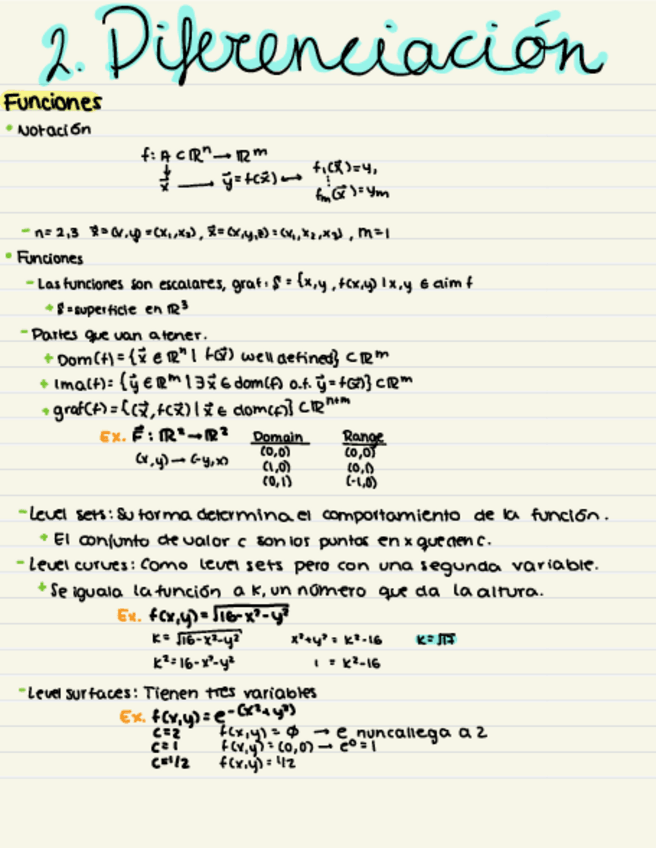 2. Diferenciación
Funciones
• Notación
f: A ⊂ ℝⁿ → ℝᵐ
x⃗ → y⃗ = f(x⃗) ↔ f₁(x⃗) = y₁
⋮
fₘ(x⃗) = yₘ
- n = 2,3 x⃗ = (x,y) = (x₁,x₂), x⃗ = (x,y,z) = (x₁,x₂,x₃), m=1
• Funciones
- Las funciones son escalares, graf: S = {x,y,f(x,y) | x,y ∈
+ S = superficie en ℝ³
- Partes que van a tener.
+ Dom(f) = {x⃗ ∈ ℝⁿ | f(x⃗) well defined} ⊂ ℝᵐ
+ Ima(f) = {y⃗ ∈ ℝᵐ | ∃x⃗ ∈ dom(f) y⃗ = f(x⃗)} ⊂ ℝᵐ
+ graf(f) = {(x⃗, f(x⃗) | x⃗ ∈ dom(f)} ⊂ ℝⁿ⁺ᵐ
Ex. F⃗: ℝ² → ℝ² Domain Range
(x,y) → (-y,x) (0,0) (0,0)
(1,0) (0,1)
(0,1) (-1,0)
- Level sets: Su forma determina el comportamiento de la función.
+ El conjunto de valor c son los puntos en x que den c.
- Level curves: Como level sets pero con una segunda variable.
+ Se iguala la función a K, un número que da la altura.
Ex. f(x,y) = √16-x²-y²
K = √16-x²-y² x²+y² = K²-16 K = √17
K² = 16-x²-y² 1 = K²-16
- Level surfaces: Tienen tres variables
Ex. f(x,y) = e^-(x²+y²)
C=2 f(x,y) = ∅ → e nunca llega a 2
C=1 f(x,y) = (0,0) → e⁰ = 1
C=1/2 f(x,y) = 1/2